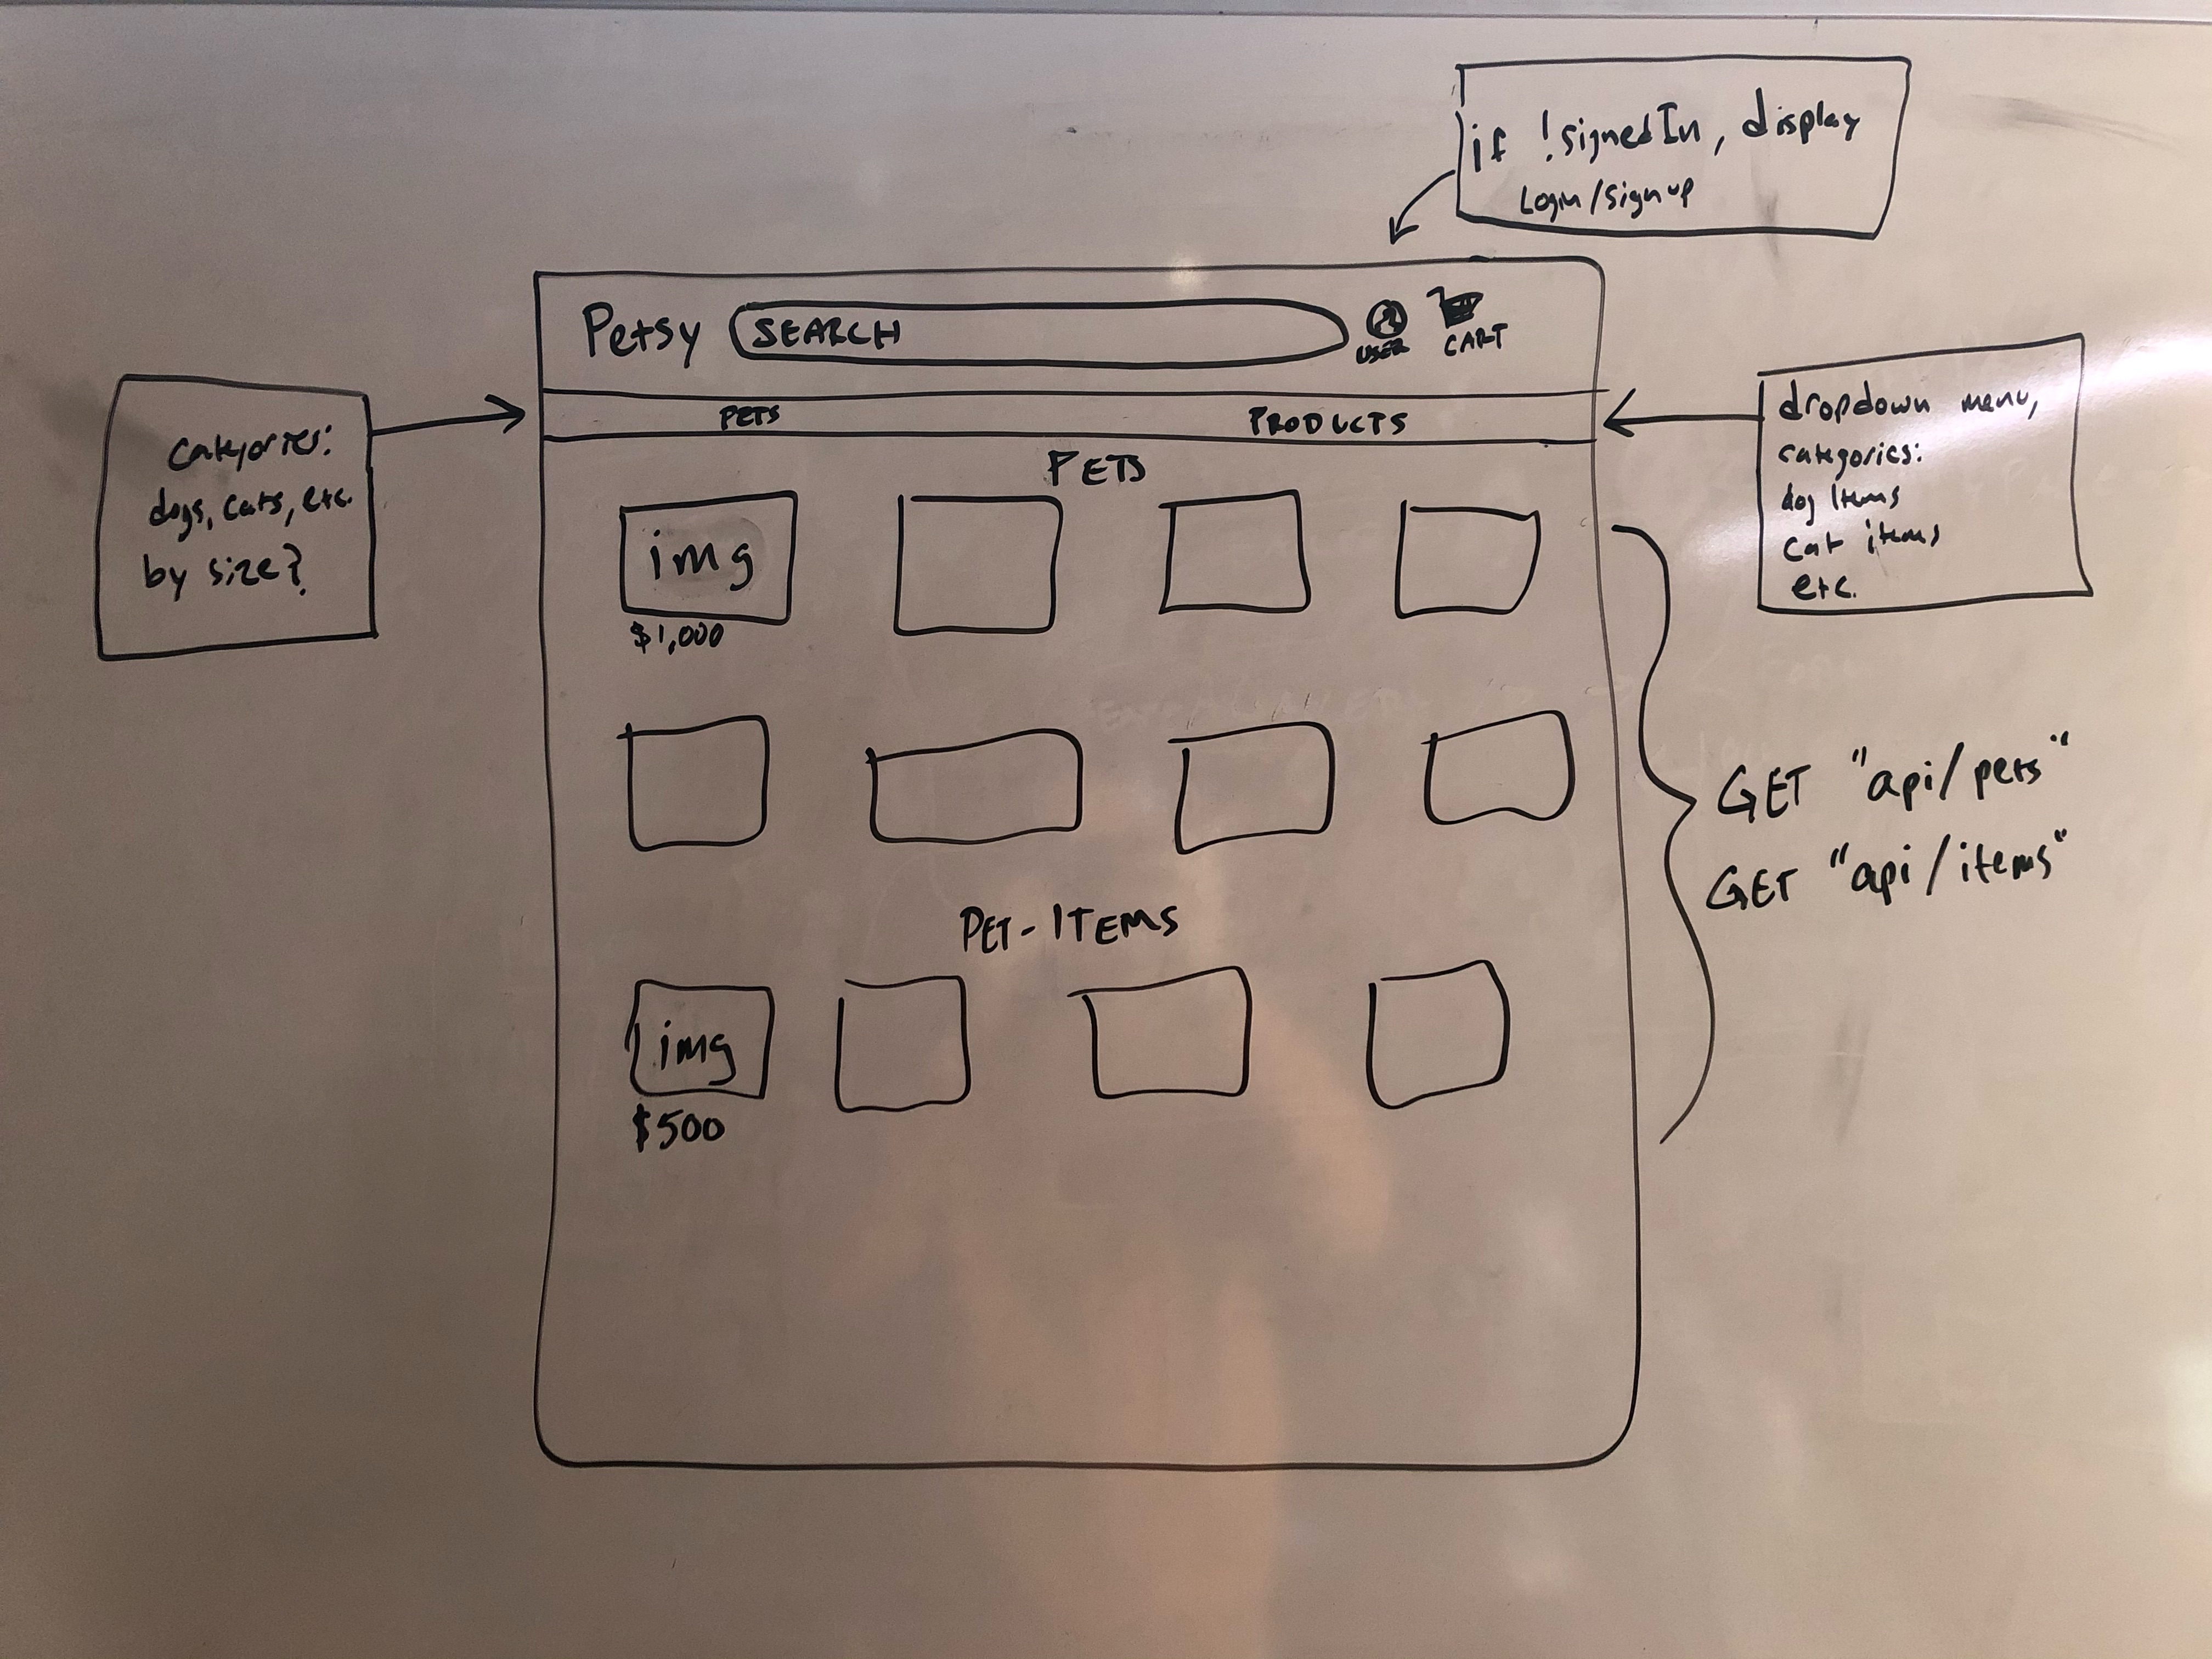 if !signedIn, display
Login/Signup
Petsy
SEARCH
USER
CART
PETS
PRODUCTS
categories:
dogs, cats, etc.
by size?
dropdown menu,
categories:
dog items
cat items
etc.
PETS
img
$1,000
GET "api/pets"
GET "api/items"
PET-ITEMS
img
$500